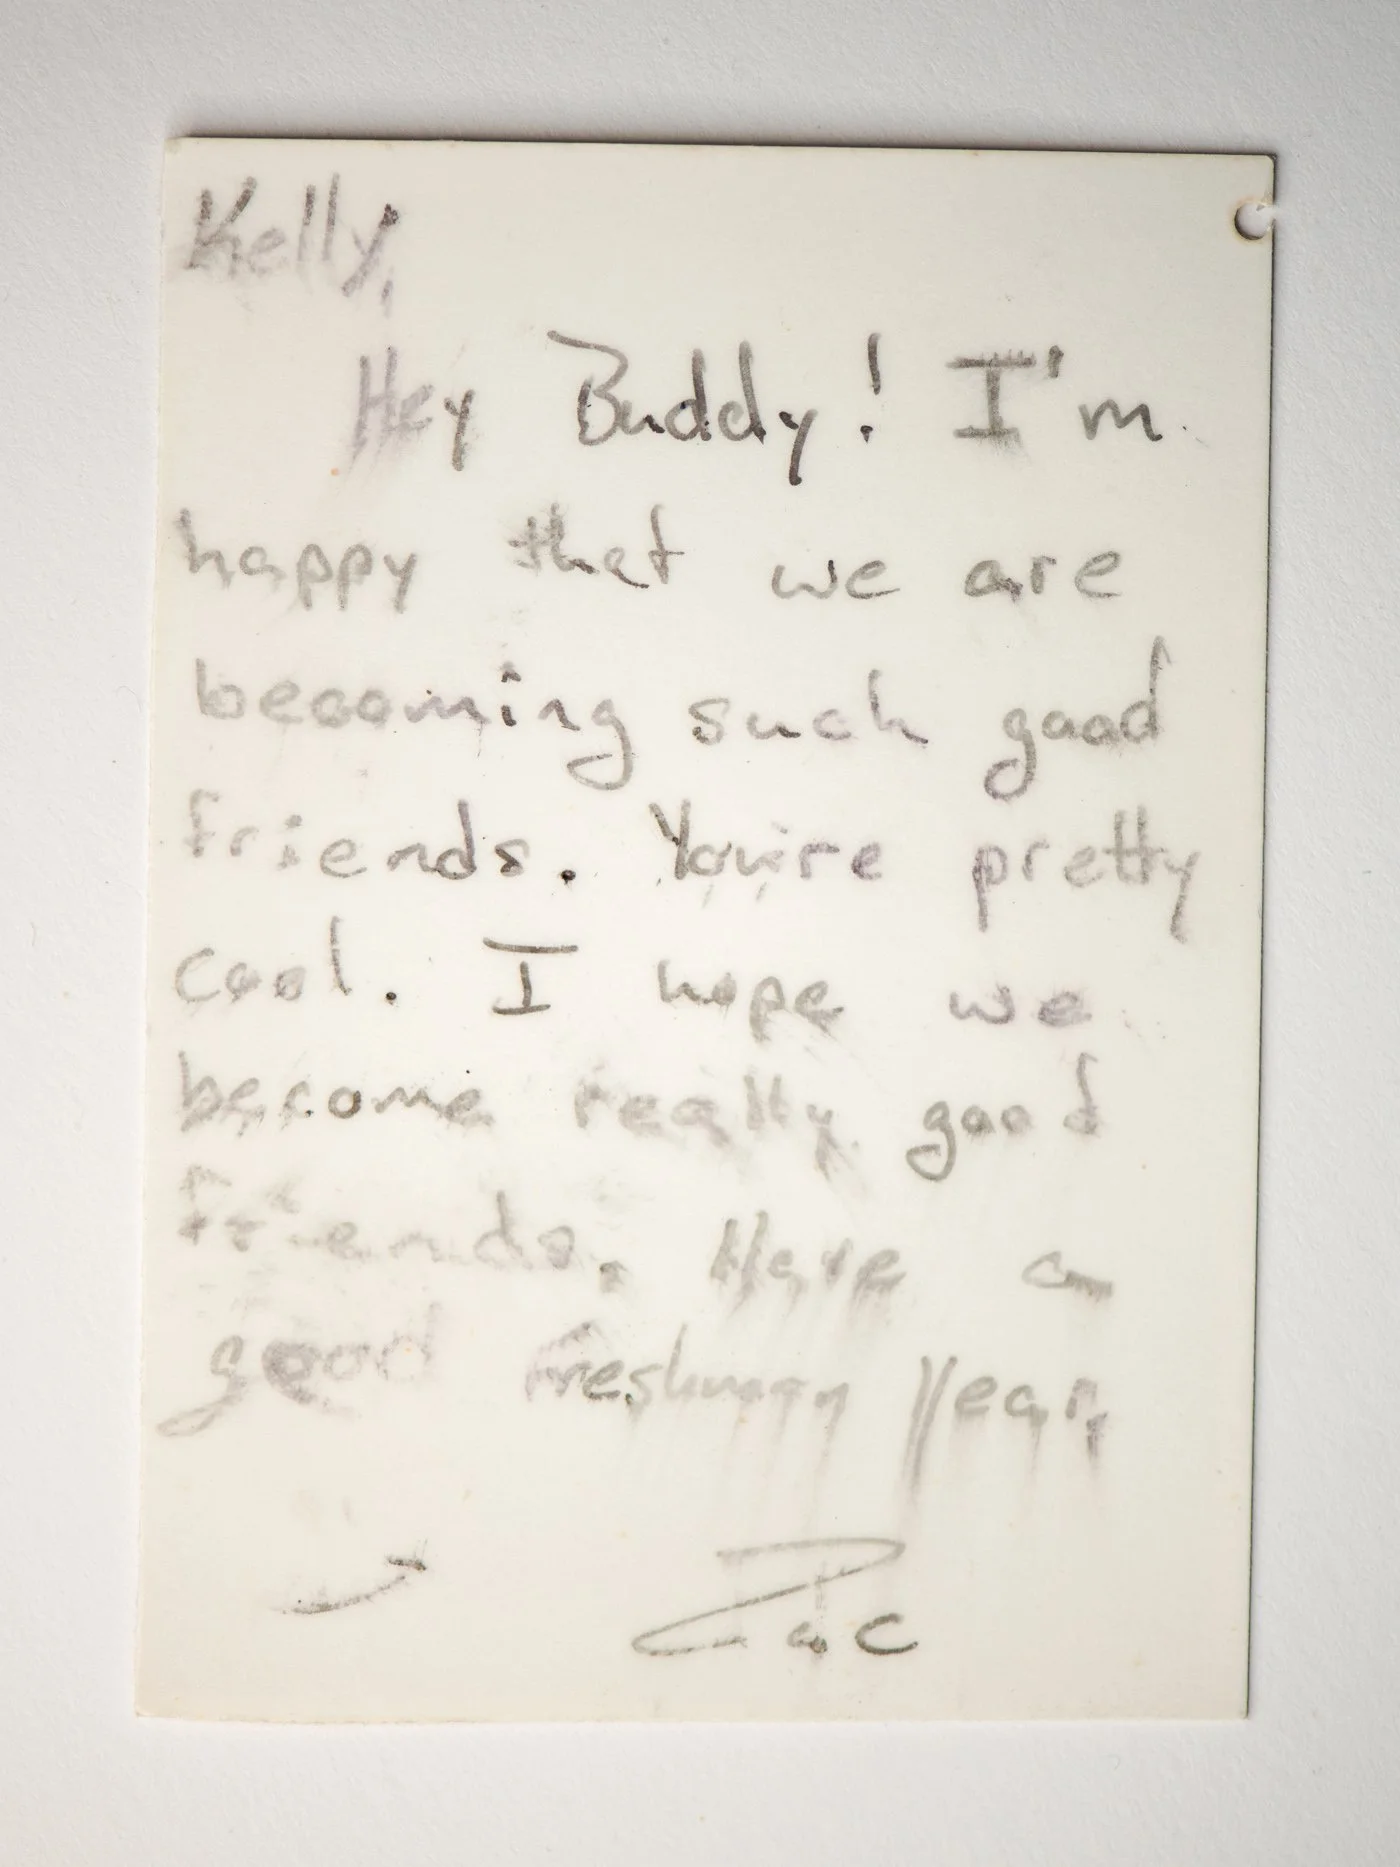 Kelly,
Hey Buddy! I'm
happy that we are
becoming such good
friends. You're pretty
cool. I hope we
become really good
friends. Have a
good freshman year,
Zac